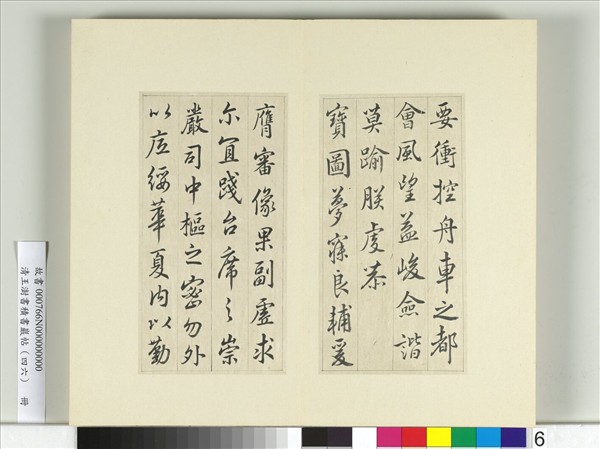 要衝控舟車之都
會風望益峻僉諧
莫踰朕虔恭
寶圖夢寐良輔爰
膺審像果副虛求
尔宜踐台席之崇
嚴司中樞之密勿外
以綏華夏内以勤
故書000766N000000000
清王澍書積書巖帖（四六） 冊
6